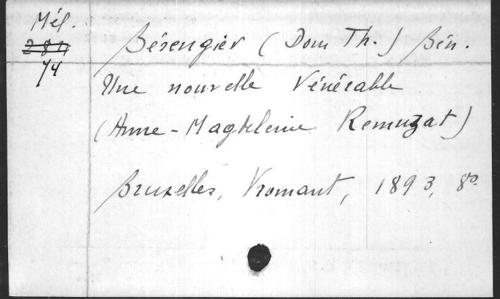 Mél.
281
74
Bérengier (Dom Th.) Bén.
Une nouvelle Vénérable
(Anne-Magdeleine Remuzat)
Bruxelles, Vromant, 1893, 8o.